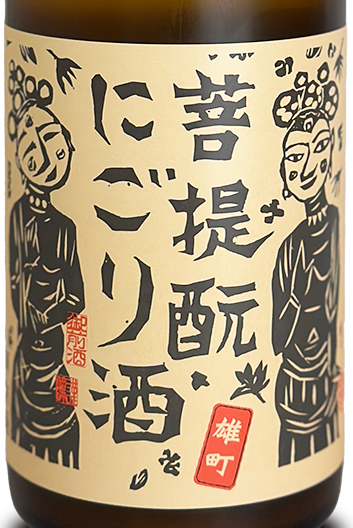 菩提酛
にごり酒
雄町
御前酒